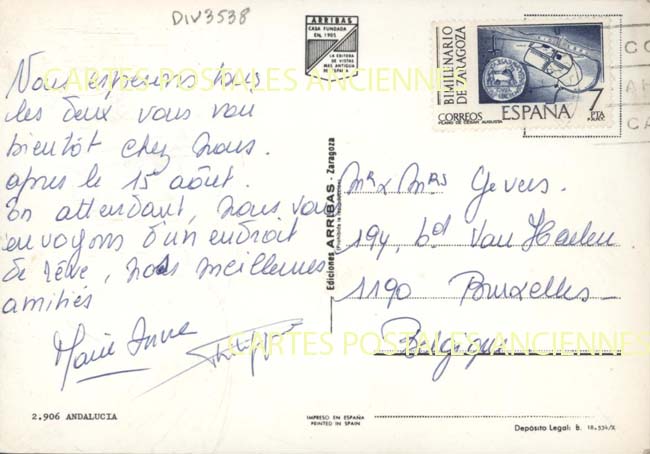 DIV3538
ARRIBAS
CASA FUNDADA
EN 1905
LA EDITORA
DE VISTAS
MAS ANTIGUA
DE ESPAÑA
BIMILENARIO
DE ZARAGOZA
CORREOS
ESPAÑA
7
PTA
PLANO DE CESAR AUGUSTA
F.N.M.T.
CARTES POSTALES ANCIENNES
Nous espérons tous
les deux vous voir
bientôt chez nous.
après le 15 août.
En attendant, nous vous
envoyons d'un endroit
de rêve, nos meilleures
amitiés
Marie Anne
Philippe
Ediciones ARRIBAS - Zaragoza
(Prohibida la reproducción)
Mr & Mrs Gevers.
194, bd Van Haelen.
1190 Bruxelles
Belgique
CARTES POSTALES ANCIENNES
2.906 ANDALUCIA
IMPRESO EN ESPAÑA
PRINTED IN SPAIN
Depósito Legal: B. 18.554/X